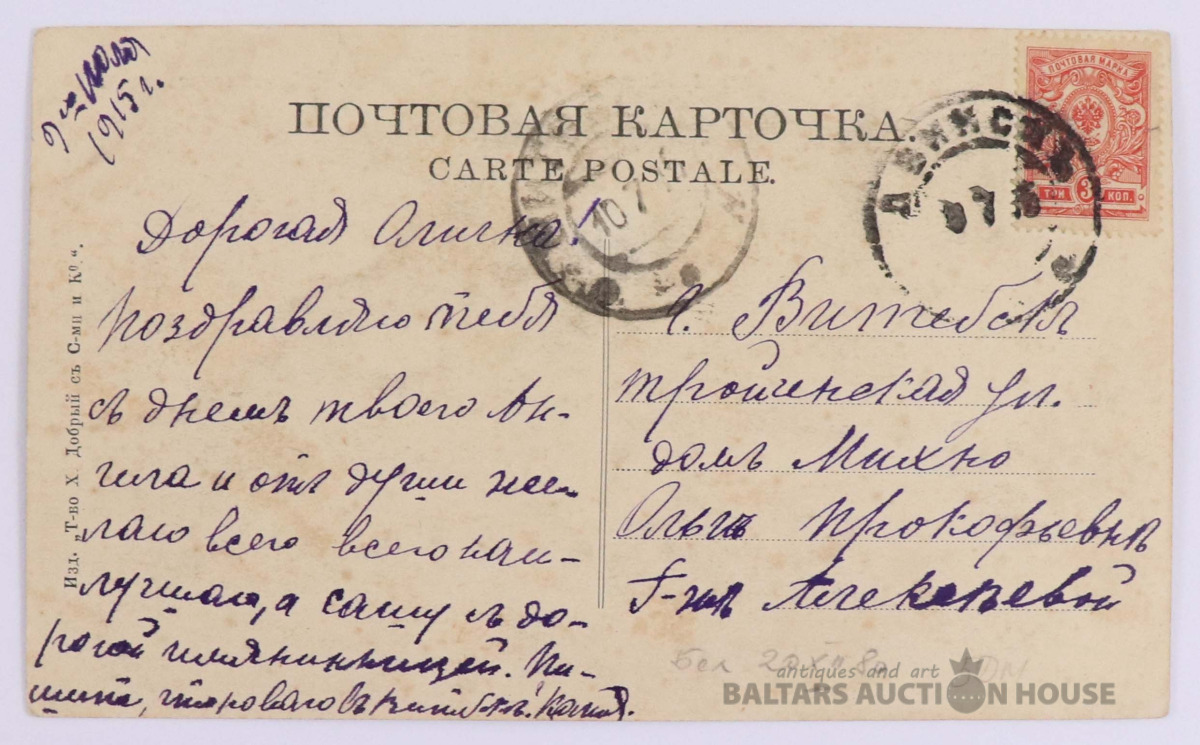 9го июля
1915 г.
ПОЧТОВАЯ КАРТОЧКА.
CARTE POSTALE.
ПОЧТОВАЯ МАРКА
ТРИ 3 КОП.
ДВИНСКЪ
10 7
Дорогая Оличка!
поздравляю тебя
съ днемъ твоего Ан-
гела и отъ души же-
лаю всего всего наи-
лучшаго, а Сашу съ до-
рогой имянинницей. Пи-
шите, новаго въ Катя.
г. Витебскъ
Троицкая ул.
домъ Михно
Ольгѣ Прокофьевнѣ
Г-жѣ Алексѣевой
Изд. „Т-во Х. Добрый съ С-ми и Ко“.
antiques and art
BALTARS AUCTION HOUSE